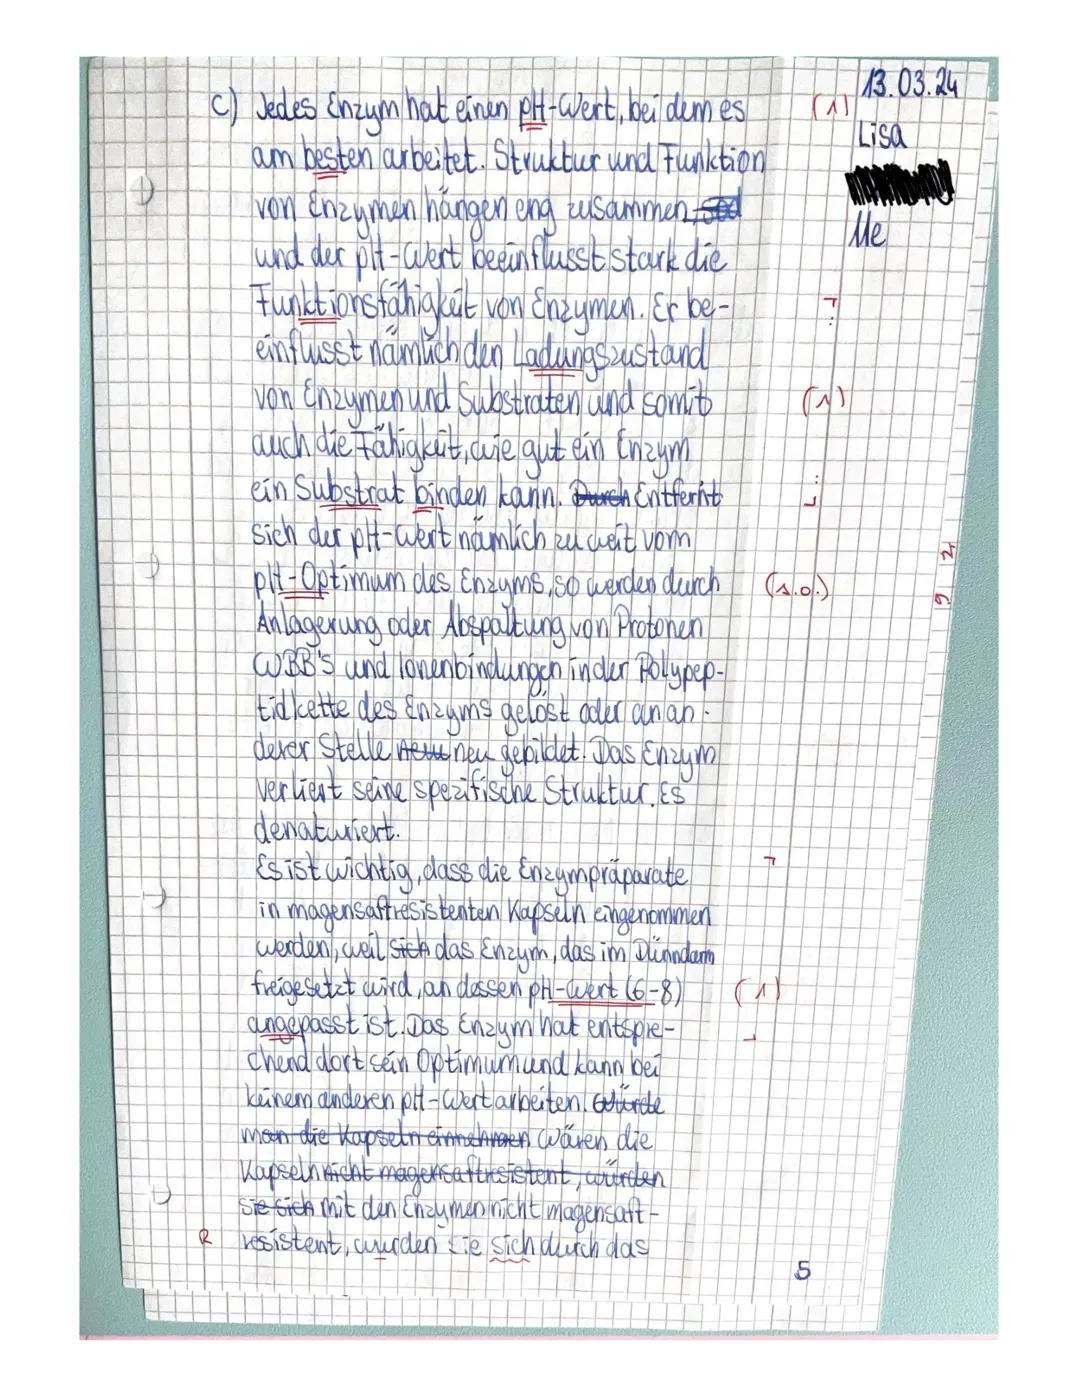 13.03.24
Lisa
Me
c) Jedes Enzym hat einen pH-Wert, bei dem es
(1)
am besten arbeitet. Struktur und Funktion
von Enzymen hängen eng zusammen
und der pH-Wert beeinflusst stark die
Funktionsfähigkeit von Enzymen. Er be-
einflusst nämlich den Ladungszustand
von Enzymen und Substraten und somit
(1)
auch die Fähigkeit, wie gut ein Enzym
ein Substrat binden kann. Durch Entfernt
sich der pH-Wert nämlich zu weit vom
pH-Optimum des Enzyms, so werden durch
(s.o.)
Anlagerung oder Abspaltung von Protonen
WBB's und Ionenbindungen in der Polypep-
tidkette des Enzyms gelöst oder an an-
derer Stelle neu gebildet. Das Enzym
verliert seine spezifische Struktur. Es
denaturiert.
Es ist wichtig, dass die Enzympräparate
in magensaftresistenten Kapseln eingenommen
werden, weil sich das Enzym, das im Dünndarm
freigesetzt wird, an dessen pH-Wert (6-8)
(1)
angepasst ist. Das Enzym hat entspre-
chend dort sein Optimum und kann bei
keinem anderen pH-Wert arbeiten. Würde
man die Kapseln einnehmen Wären die
Kapseln nicht magensaftresistent, würden
sie sich mit den Enzymen nicht magensaft-
R resistent, wurden sie sich durch das
5